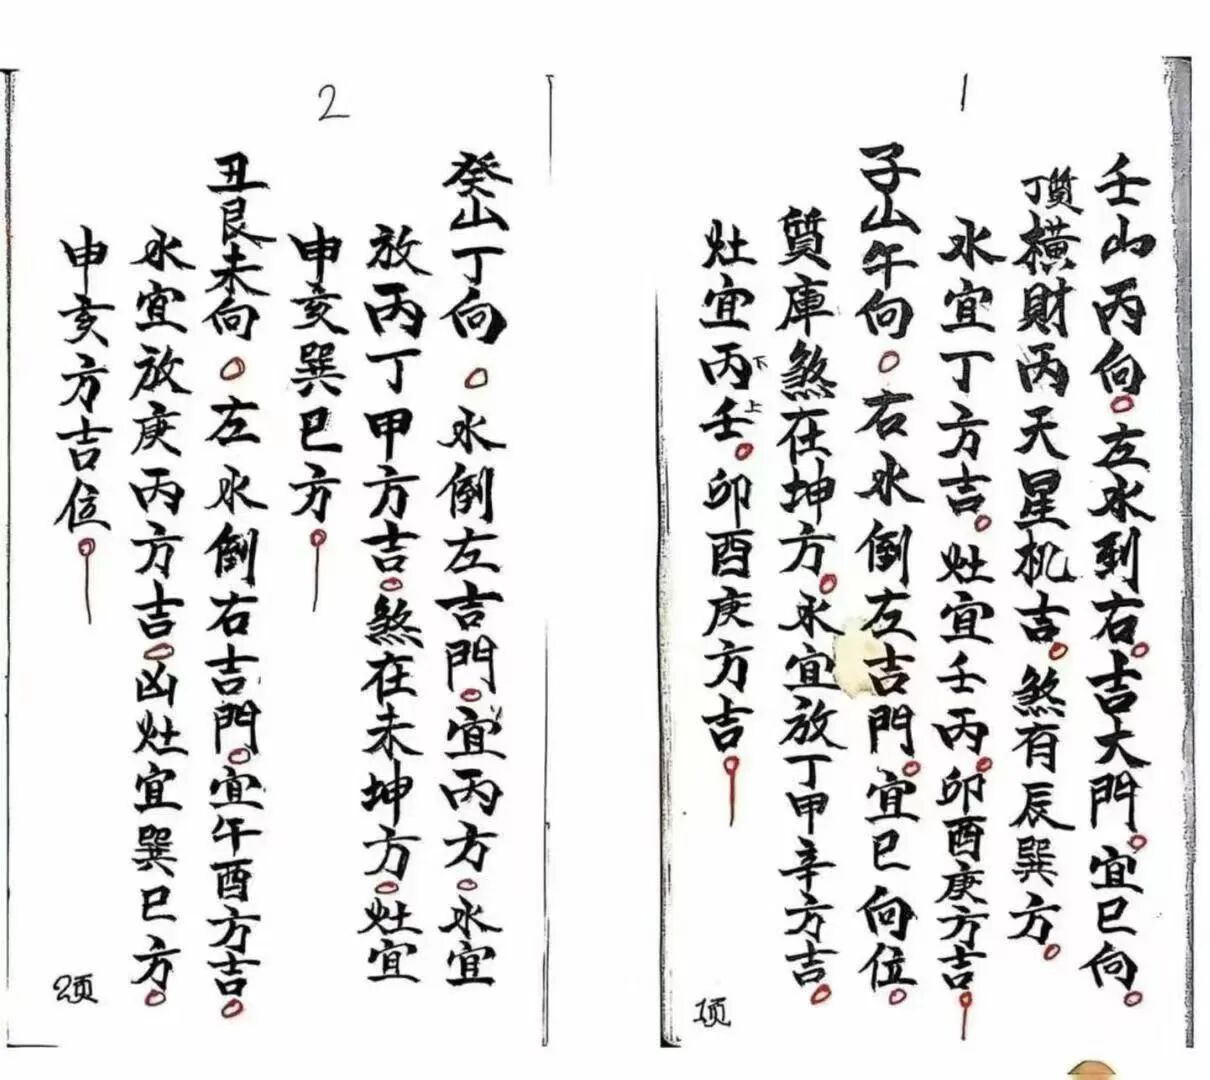 1
壬山丙向。左水到右。吉大門。宜巳向。
丁質
橫財丙天星机吉。煞有辰巽方。
水宜丁方吉。灶宜壬丙。卯酉庚方吉。
子山午向。右水倒左吉門。宜巳向位。
質庫煞在坤方。水宜放丁甲辛方吉。
灶宜丙下壬上。卯酉庚方吉。
1页
2
癸山丁向。水倒左吉門。宜丙方。水宜
放丙丁甲方吉。煞在未坤方。灶宜
申亥巽巳方。
丑艮未向。左水倒右吉門。宜午酉方吉。
水宜放庚丙方吉。凶灶宜巽巳方。
申亥方吉位。
2页